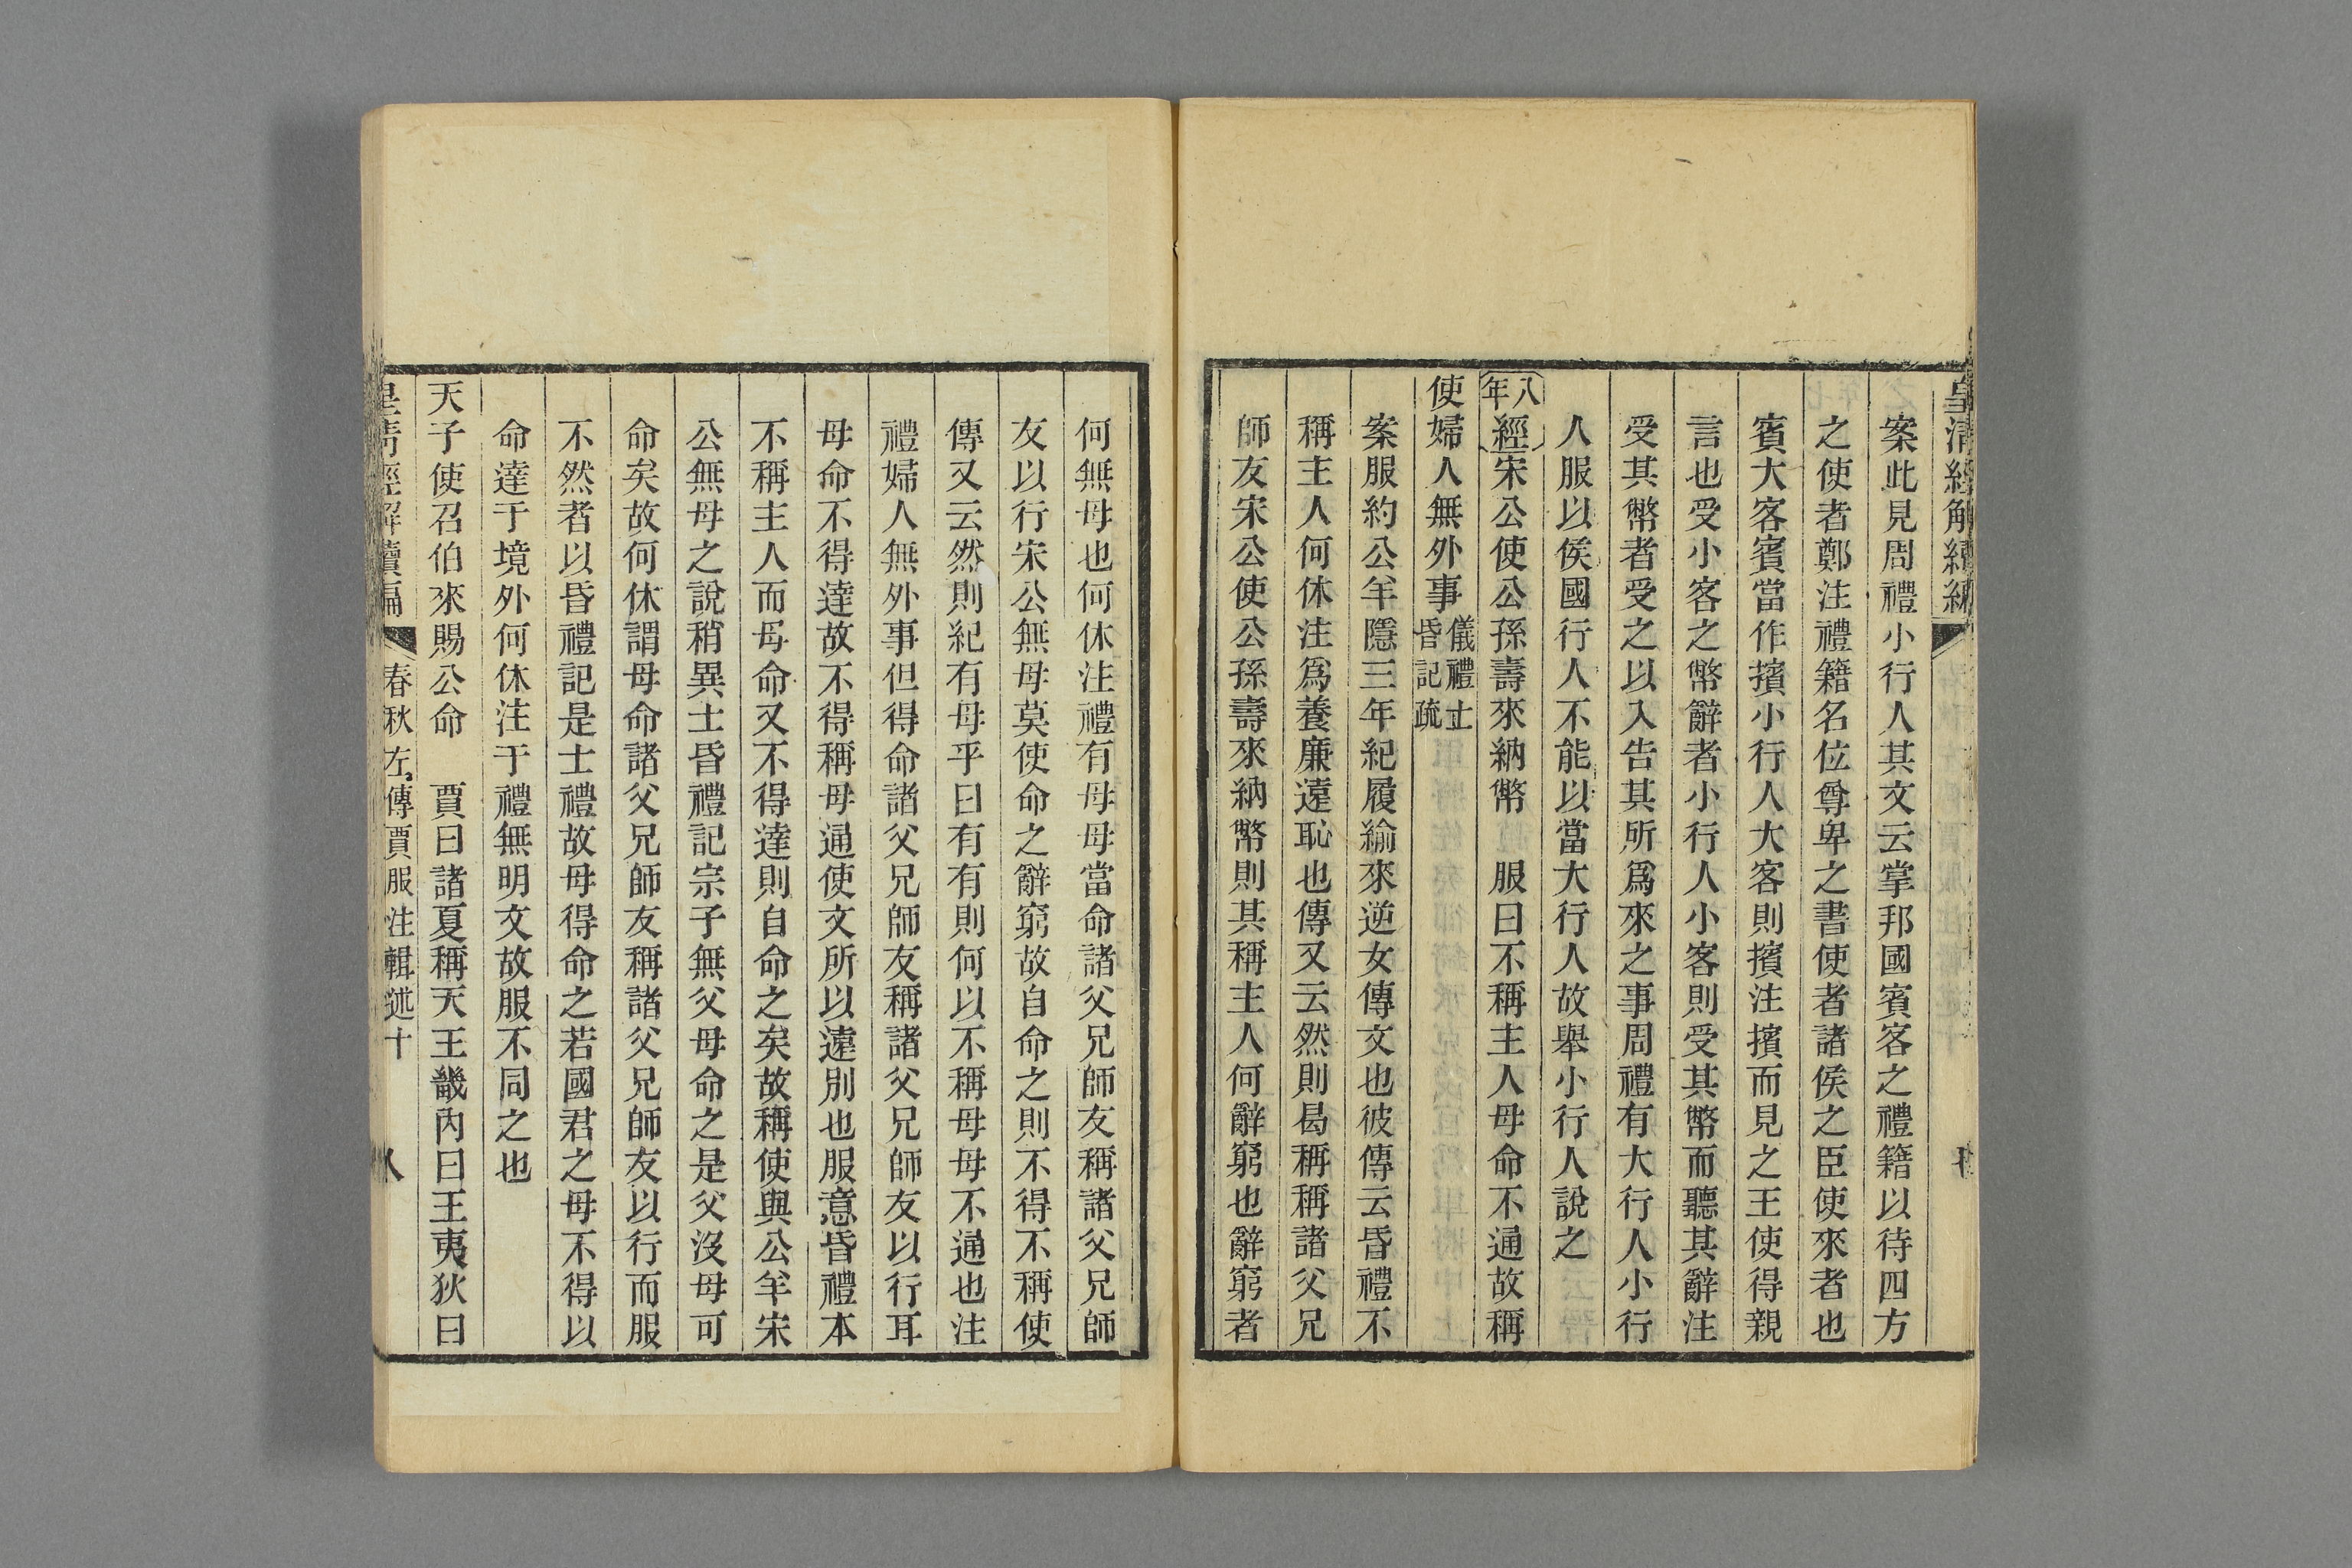 皇清經解續編
案此見周禮小行人其文云掌邦國賓客之禮籍以待四方
之使者鄭注禮籍名位尊卑之書使者諸侯之臣使來者也
賓大客賓當作擯小行人大客則擯注擯而見之王使得親
言也受小客之幣辭者小行人小客則受其幣而聽其辭注
受其幣者受之以入告其所爲來之事周禮有大行人小行
人服以侯國行人不能以當大行人故舉小行人說之
八年經宋公使公孫壽來納幣　服曰不稱主人母命不通故稱
使婦人無外事儀禮士昏記疏
案服約公羊隱三年紀履緰來逆女傳文也彼傳云昏禮不
稱主人何休注爲養廉遠恥也傳又云然則曷稱稱諸父兄
師友宋公使公孫壽來納幣則其稱主人何辭窮也辭窮者
何無母也何休注禮有母母當命諸父兄師友稱諸父兄師
友以行宋公無母莫使命之辭窮故自命之則不得不稱使
傳又云然則紀有母乎曰有有則何以不稱母母不通也注
禮婦人無外事但得命諸父兄師友稱諸父兄師友以行耳
母命不得達故不得稱母通使文所以遠別也服意昏禮本
不稱主人而母命又不得達則自命之矣故稱使與公羊宋
公無母之說稍異士昏禮記宗子無父母命之是父沒母可
命矣故何休謂母命諸父兄師友稱諸父兄師友以行而服
不然者以昏禮記是士禮故母得命之若國君之母不得以
命達于境外何休注于禮無明文故服不同之也
天子使召伯來賜公命　賈曰諸夏稱天王畿內曰王夷狄曰
皇清經解續編　春秋左傳賈服注輯述十　八